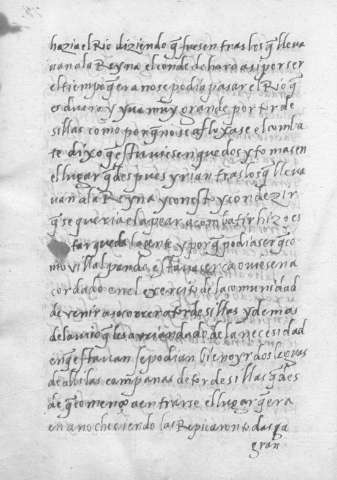 hazia el Rio diziendo q̃ fuesen tras los q̃ lleva
van a la Reyna el conde de haro asi por ser
el tiempo q̃ era no se podia pasar el Rio q̃
es duero y yva muy grande por tor de
sillas como porq̃ no se afloxase el comba
te dixo q̃ estuviesen quedos y tomasen
el lugar q̃ despues yrian tras los q̃ lleva
van a la Reyna y con esto y con dezir
q̃ se queria el apear a combatir hizo es
tar queda la gente y porq̃ podia ser q̃ co
mo villalpando estava cerca oviesen a
cordado en el exercito de la comunidad
de venir a socorrer a tor de sillas y demas
del aviso q̃ les avrian dado de la necesidad
en q̃ estavan se podian bien oyr dos leguas
de alli las campanas de tor de sillas q̃
de q̃ començo a entrarse el lugar q̃ era
en anocheciendo las Repicaron todas
gran